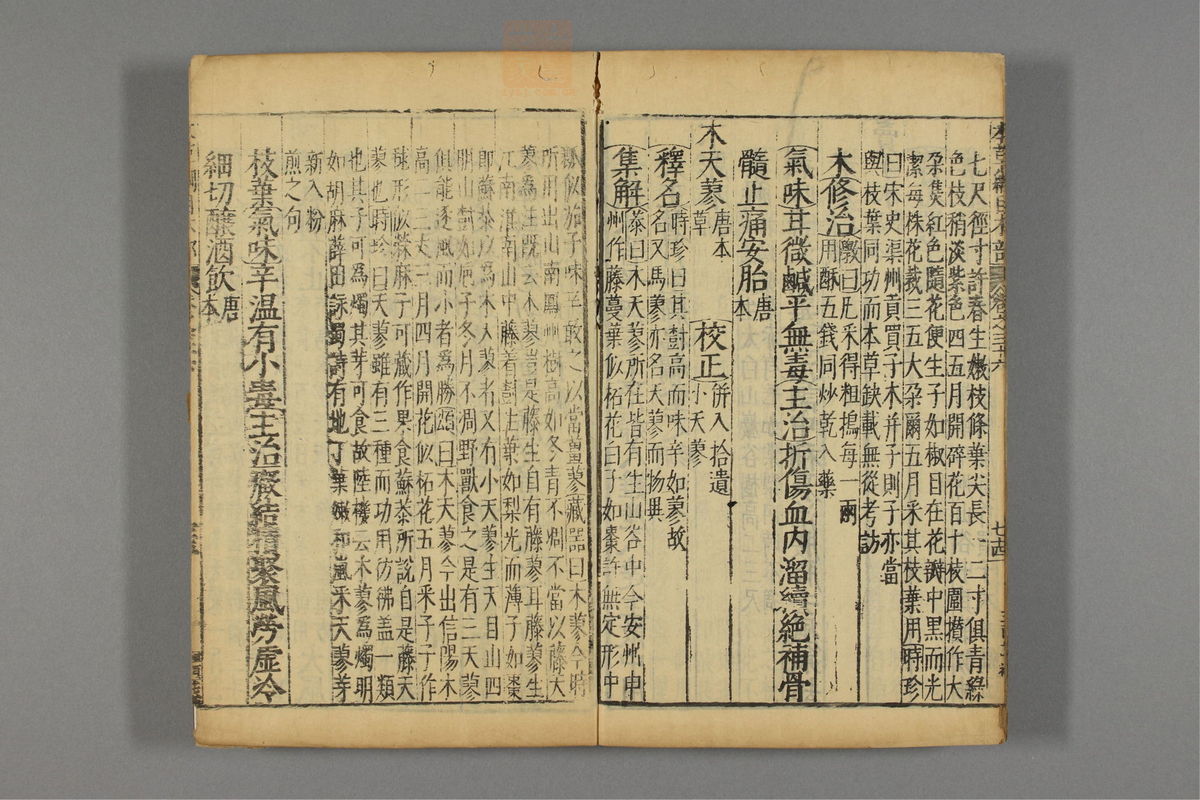 七尺徑寸許春生嫩枝條葉尖長一二寸俱青綠
色枝稍淡紫色四五月開碎花百十枝圍攢作大
朵焦紅色隨花便生子如椒目在花瓣中黑而光
潔每株花裁三五大朵爾五月采其枝葉用時珍
曰宋史渠州貢買子木并子則子亦當
與枝葉同功而本草缺載無從考訪
木修治斆曰凡采得粗搗每一兩
用酥五錢同炒乾入藥
氣味甘微鹹平無毒主治折傷血內溜續絕補骨
髓止痛安胎唐本
木天蓼唐本草 校正併入拾遺小天蓼
釋名時珍曰其樹高而味辛如蓼故
名又馬蓼亦名天蓼而物異
集解恭曰木天蓼所在皆有生山谷中今安州申
州作藤蔓葉似柘花白子如棗許無定形中
瓤似茄子味辛敢之以當薑蓼藏器曰木蓼今時
所用出山南鳳州樹高如冬青不凋不當以藤天
蓼為注既云木蓼豈是藤生自有藤蓼耳藤蓼生
江南淮南山中藤着樹生葉如梨光而薄子如棗
即蘇恭以為木天蓼者又有小天蓼生天目山四
明山樹如梔子冬月不凋野獸食之是有三天蓼
俱能逐風而小者為勝頌曰木天蓼今出信陽木
高二三丈三月四月開花似柘花五月采子子作
毬形似檾麻子可藏作果食蘇恭所說自是藤天
蓼也時珍曰天蓼雖有三種而功用彷彿盖一類
也其子可為燭其芽可食故陸機云木蓼為燭明
如胡麻薛田詠蜀詩有地丁葉嫩和嵐采天蓼芽
新入粉
煎之句
枝葉氣味辛温有小毒主治癥結積聚風勞虛冷
細切釀酒飲唐本